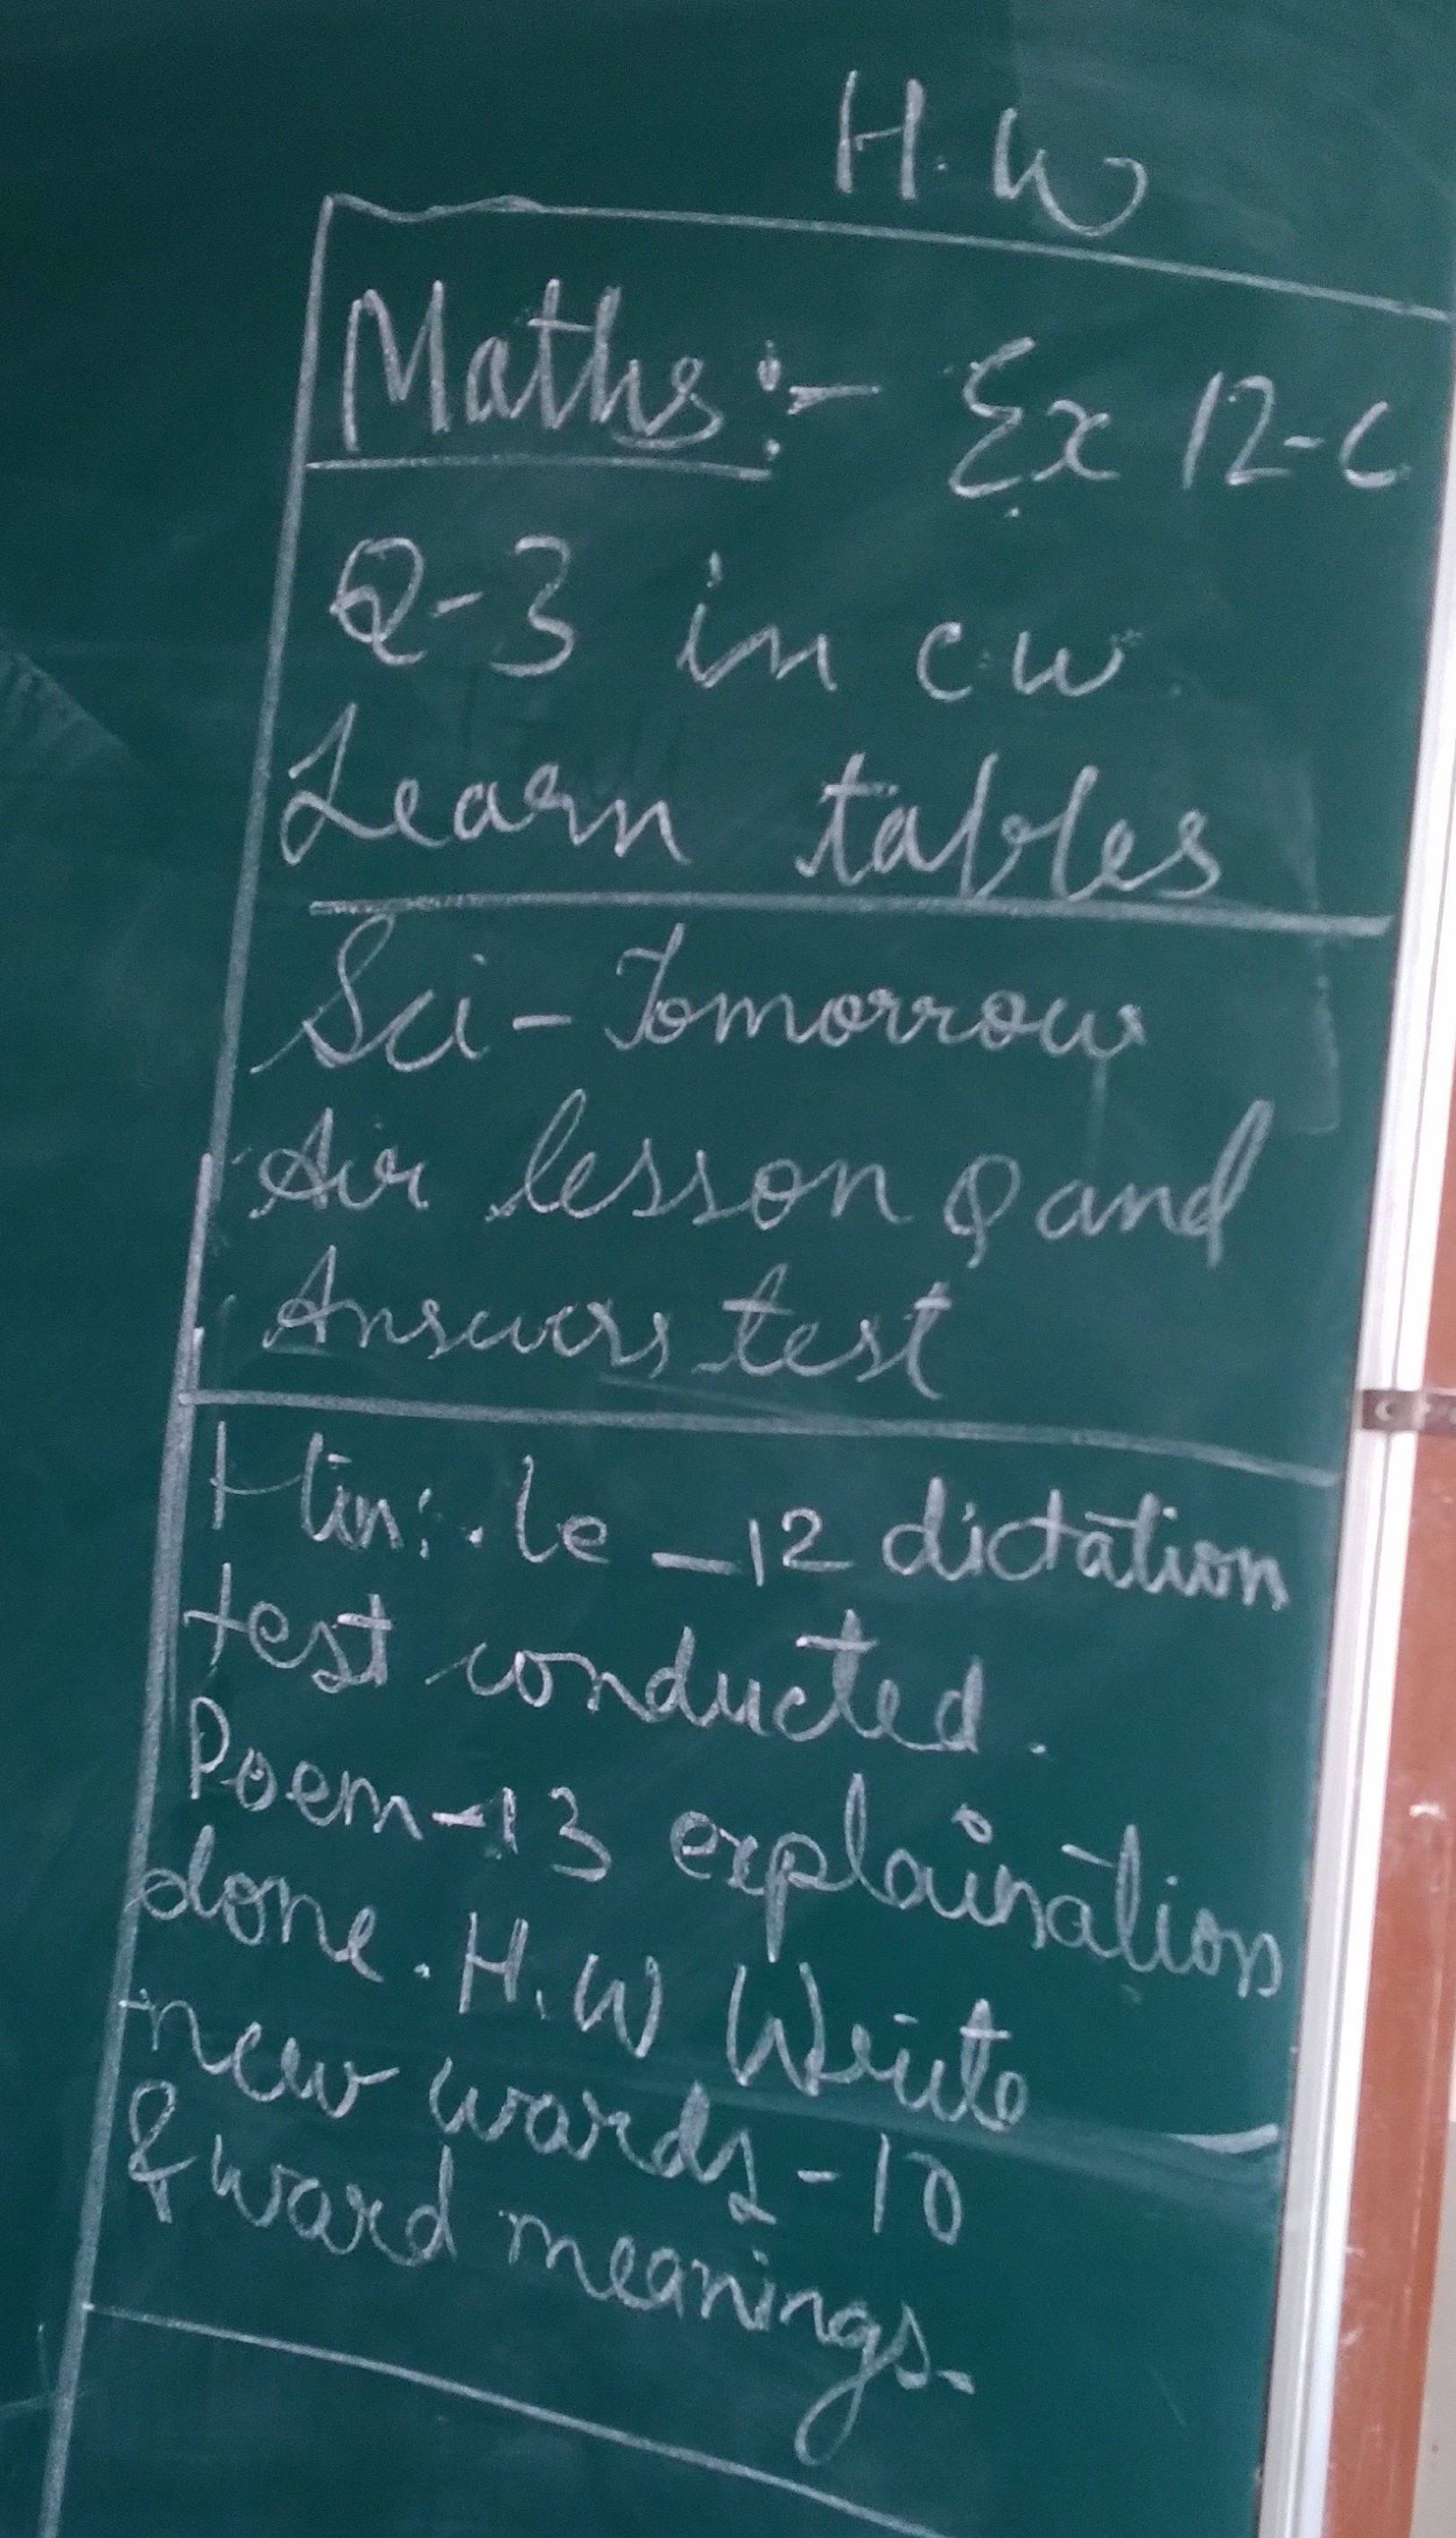 H.W
Maths:- Ex 12-C
Q-3 in cw
Learn tables
Sci - Tomorrow
Air lesson Q and
Answers test
Hin: le - 12 dictation
test conducted.
Poem-13 explaination
done. H.W Write
new words - 10
& word meanings.